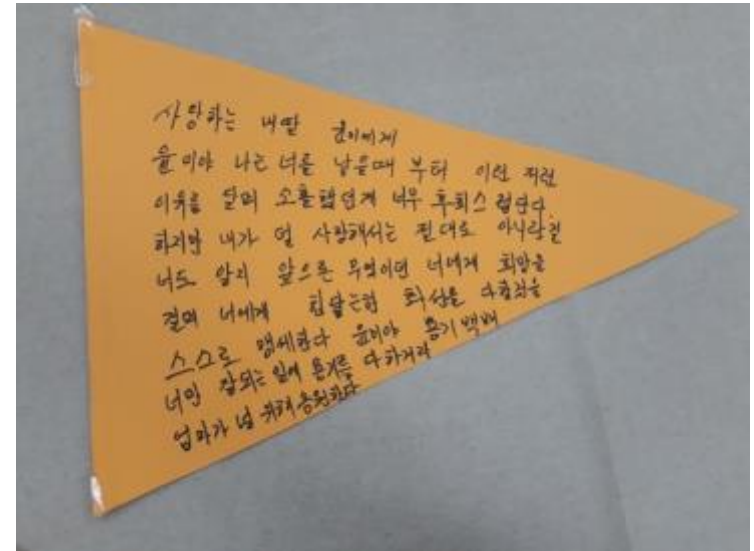 사랑하는 내딸 윤이에게
윤이야 나는 너를 낳을때 부터 이런 저런
이유를 달며 소홀했던게 너무 후회스럽단다
하지만 내가 덜 사랑해서는 절대로 아니란걸
너도 알지 앞으론 무엇이던 너에게 희망을
걸며 너에게 힘닫는험 최선을 다할것을
스스로 맹세한다 윤이야 용기백배
너민 잘되는 일에 용기를 다하거라
엄마가 널 위해 응원한다